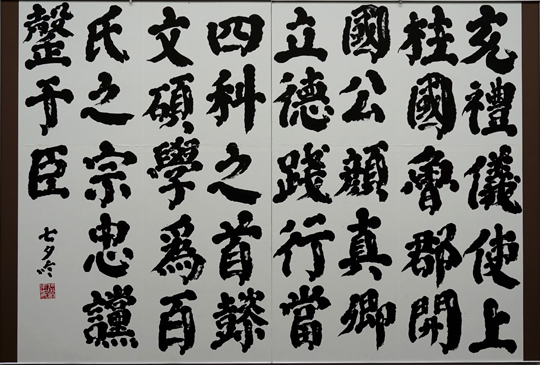 充禮儀使上
柱國魯郡開
國公顔真卿
立德踐行當
四科之首懿
文碩學爲百
氏之宗忠讜
罄于臣
七夕